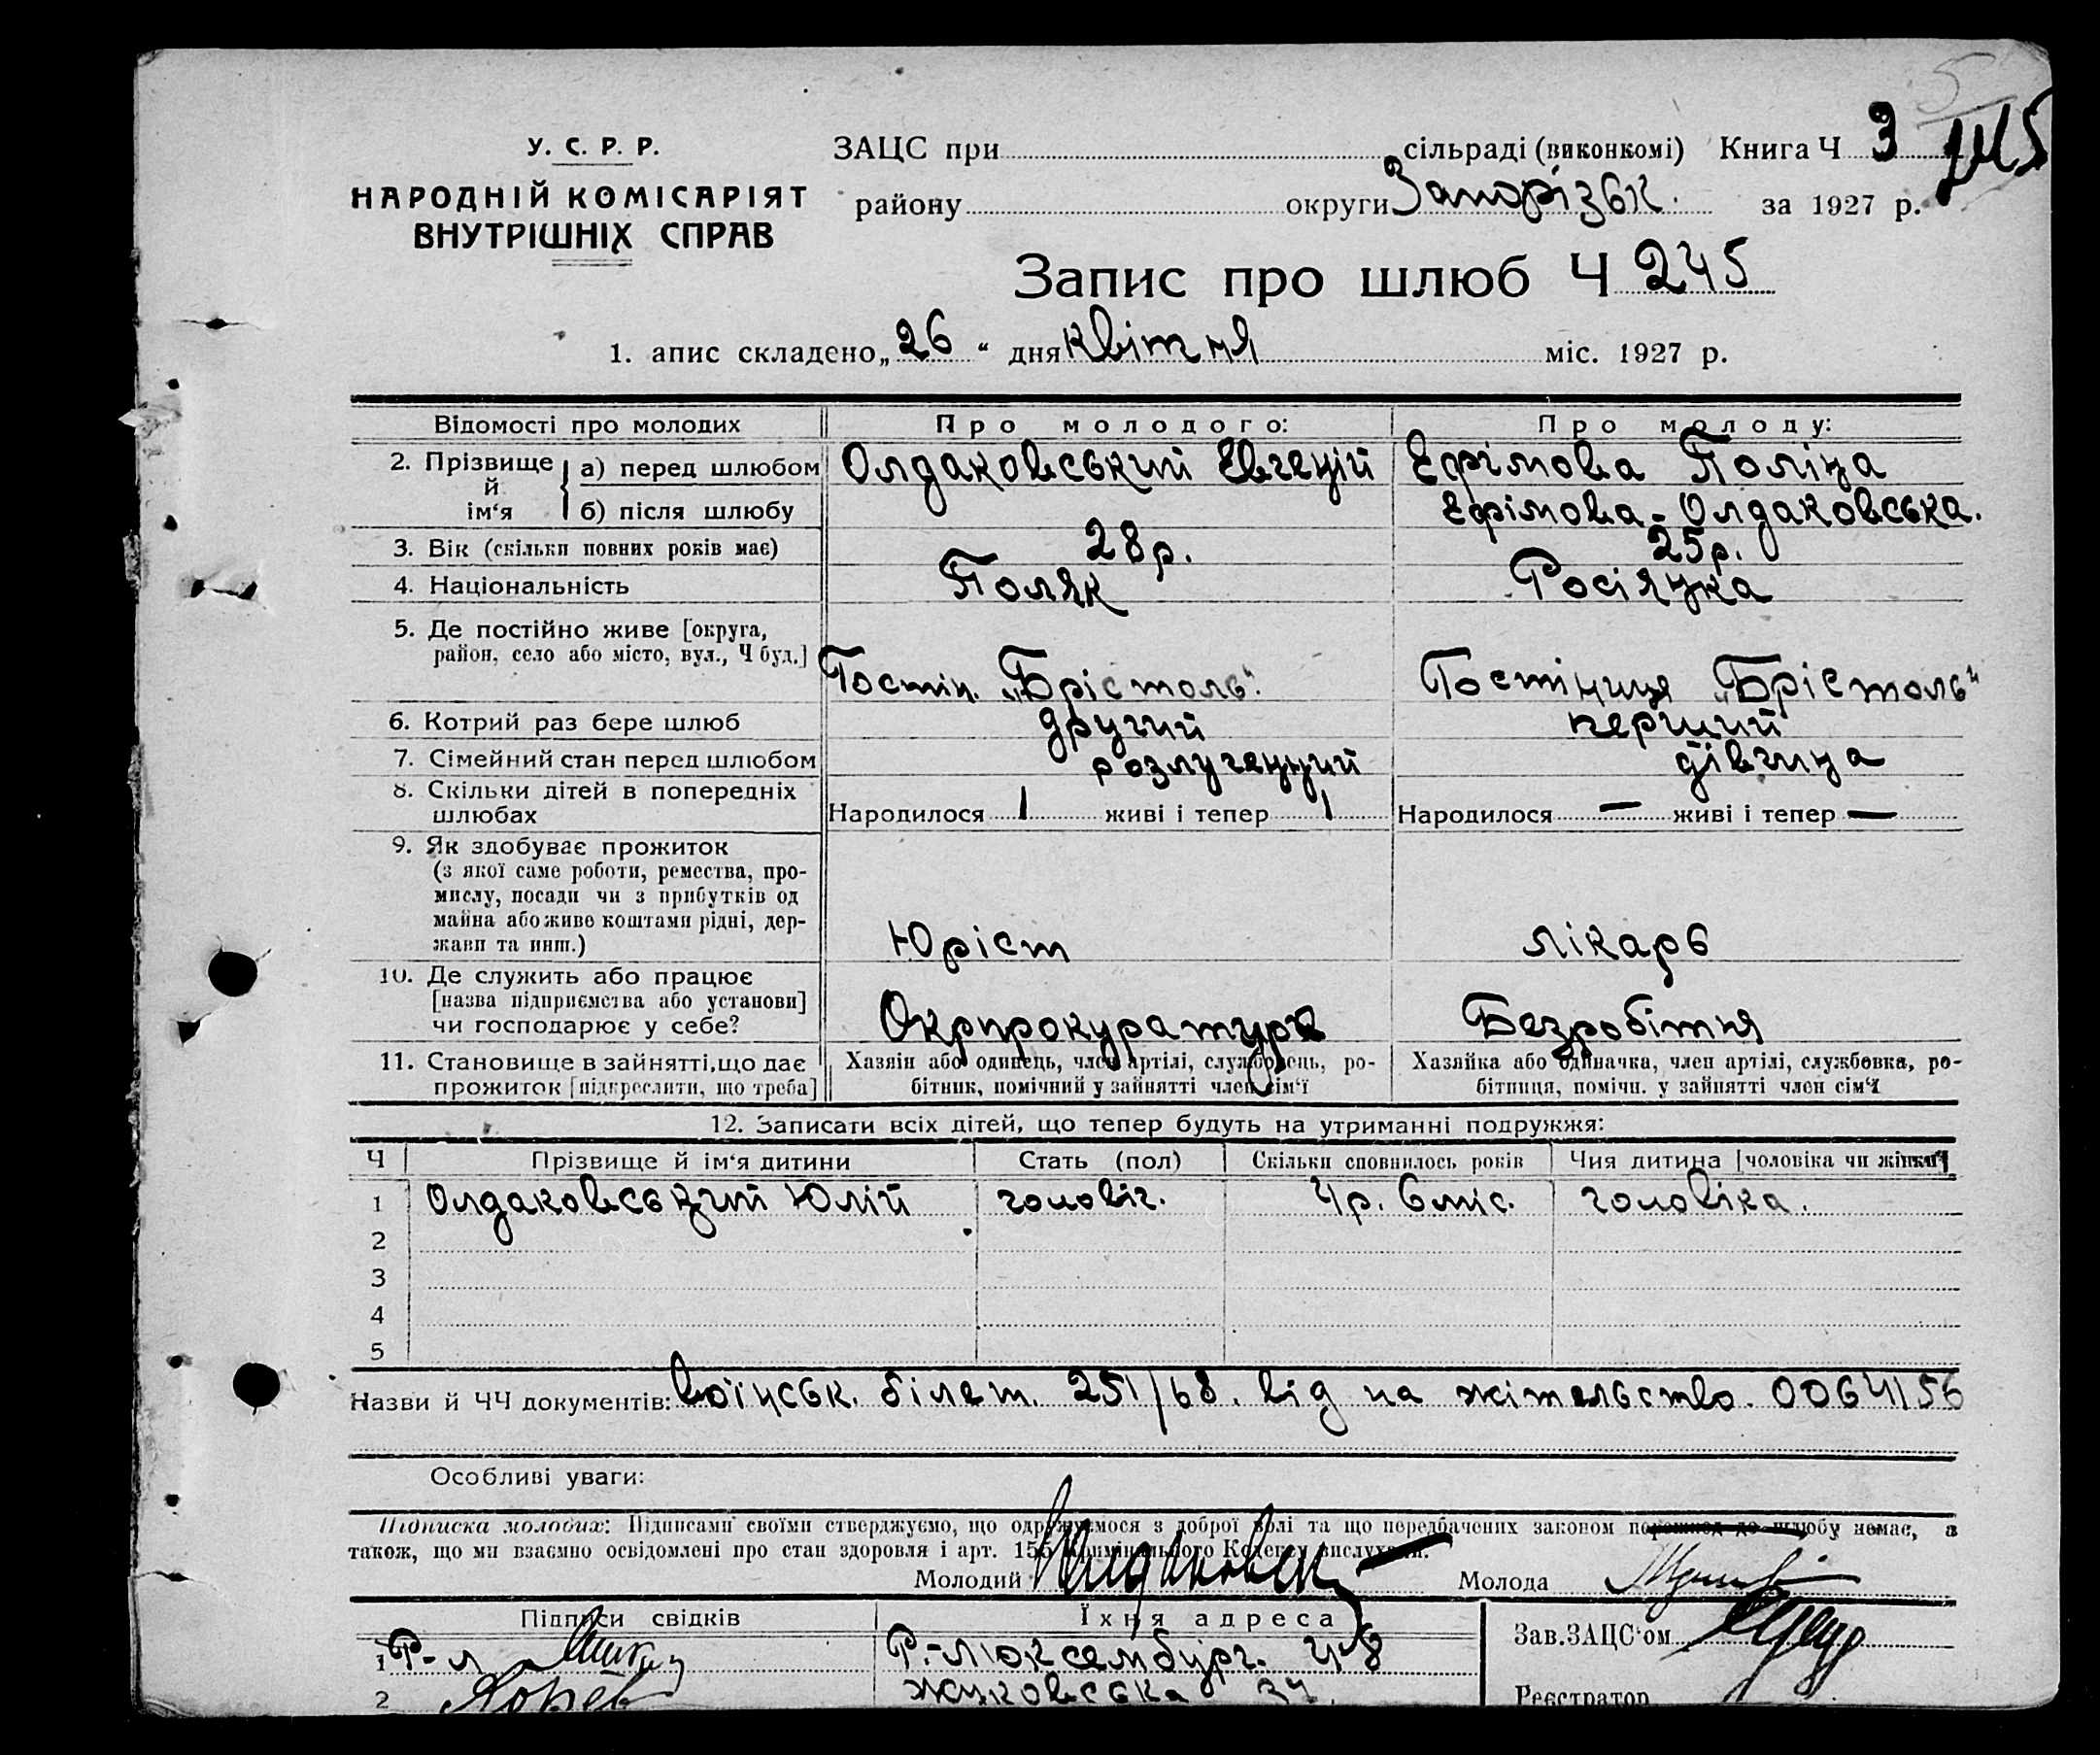 У. С. Р. Р.
НАРОДНІЙ КОМІСАРІЯТ
ВНУТРІШНІХ СПРАВ
ЗАЦС при сільраді (виконкомі) Книга Ч 3
району округи Запорізьк. за 1927 р.
Запис про шлюб Ч 245
1. апис складено „26“ дня квітня міс. 1927 р.
Відомості про молодих Про молодого: Про молоду:
2. Прізвище й ім‘я а) перед шлюбом Олдаковський Евгеній Ефімова Поліна
б) після шлюбу Ефімова-Олдаковська.
3. Вік (скільки повних років має) 28р. 25р.
4. Національність Поляк Росіянка
5. Де постійно живе [округа,
район, село або місто, вул., Ч буд.] Гостін. „Брістоль“. Гостіниця „Брістоль“
6. Котрий раз бере шлюб другий перший
7. Сімейний стан перед шлюбом розлучений дівчина
8. Скільки дітей в попередніх
шлюбах Народилося 1 живі і тепер 1 Народилося — живі і тепер —
9. Як здобуває прожиток
(з якої саме роботи, ремества, про-
мислу, посади чи з прибутків од
майна або живе коштами рідні, дер-
жави та инш.) Юріст лікарь
10. Де служить або працює
[назва підприємства або установи]
чи господарює у себе? Окрпрокуратура Безробітня
11. Становище в зайнятті, що дає
прожиток [підкреслити, що треба]
Хазяін або одинець, член артілі, службовець, ро-
бітник, помічний у зайнятті член сім‘ї
Хазяйка або одиначка, член артілі, службовка, ро-
бітниця, помічн. у зайнятті член сім‘ї
12. Записати всіх дітей, що тепер будуть на утриманні подружжя:
Ч Прізвище й ім‘я дитини Стать (пол) Скільки сповнилось років Чия дитина [чоловіка чи жінки]
1 Олдаковський Юлій чоловіч. 4р. 6 міс. чоловіка.
2
3
4
5
Назви й ЧЧ документів: Воїнськ. білет. 251/68. від на жітельство. 0064156
Особливі уваги:
Підписка молодих: Підписами своїми стверджуємо, що одружуємося з доброї волі та що передбачених законом перешкод до шлюбу немає, а
також, що ми взаємно освідомлені про стан здоровля і арт. 155 Кримінального Кодексу вислухали.
Молодий Молода
Підписи свідків Їхня адреса
Зав. ЗАЦС‘ом
1 Р.-Люксембург. 48
2 Жуковська 34.
Реєстратор